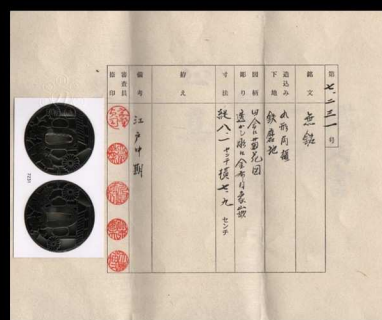 第 七、二三一 号
銘文 無銘
造込み 丸形肉彫
下地 鉄磨地
図柄 四分の菊花図
彫り 透かし彫に金布目象嵌
寸法 縦八、一センチ 横七、九センチ
附え
備考 江戸中期
審査員
捺印
7231